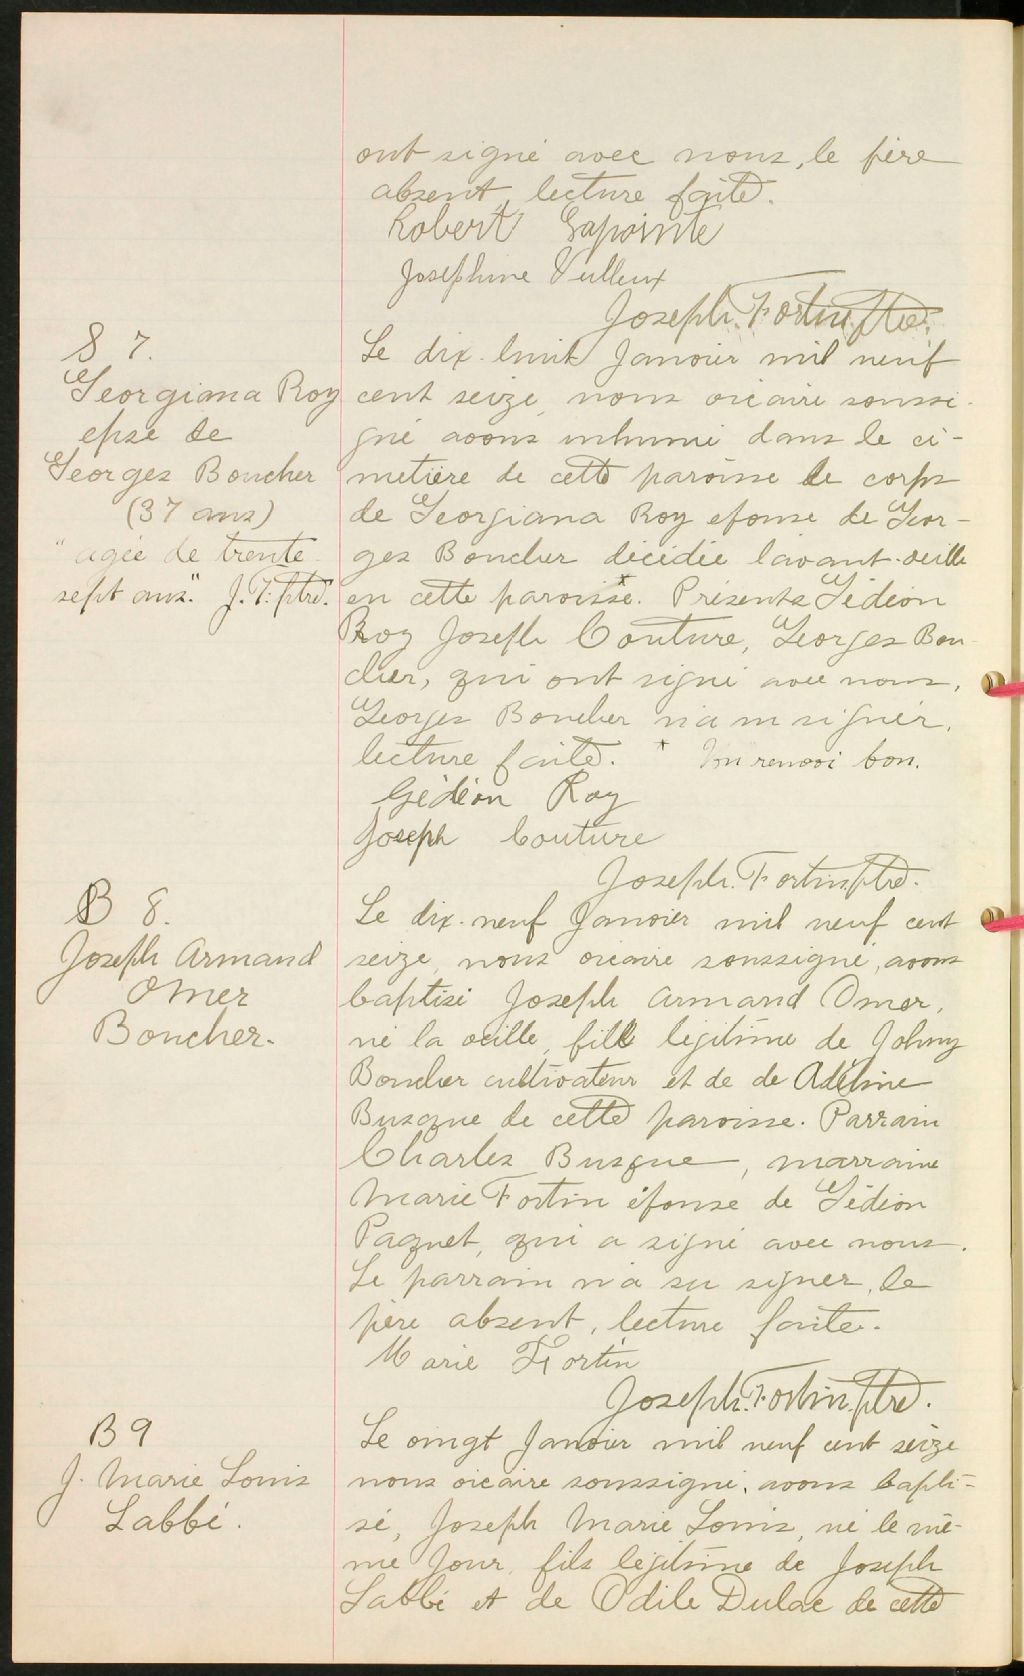 ont signé avec nous, le père
absent, lecture faite.
Robert Lapointe
Joséphine Veilleux
Joseph. F. Fortin, ptre.
S 7.
Georgiana Roy
epse de
Georges Boucher
(37 ans)
" agée de trente
sept ans." J. F. ptre.
Le dix-huit Janvier mil neuf
cent seize, nous vicaire soussi-
gné avons inhumé dans le ci-
metière de cette paroisse le corps
de Georgiana Roy épouse de Geor-
ges Boucher décédée l'avant-veille
en cette paroisse.* Présents Gédéon
Roy Joseph Couture, Georges Bou-
cher, qui ont signé avec nous,
Georges Boucher n'a su signer,
lecture faite. * Un renvoi bon.
Gédéon Roy
Joseph Couture
Joseph. F. Fortin, ptre.
B 8.
Joseph Armand
Omer
Boucher.
Le dix-neuf Janvier mil neuf cent
seize, nous vicaire soussigné, avons
baptisé Joseph Armand Omer,
né la veille, fils légitime de Johny
Boucher cultivateur et de de Adéline
Busque de cette paroisse. Parrain
Charles Busque, marraine
Marie Fortin épouse de Gédéon
Paquet, qui a signé avec nous.
Le parrain n'a su signer, le
père absent, lecture faite.
Marie Fortin
Joseph. F. Fortin, ptre.
B 9
J. Marie Louis
Labbé.
Le vingt Janvier mil neuf cent seize
nous vicaire soussigné, avons bapti-
sé, Joseph Marie Louis, né le mê-
me jour, fils légitime de Joseph
Labbé et de Odile Dulac de cette